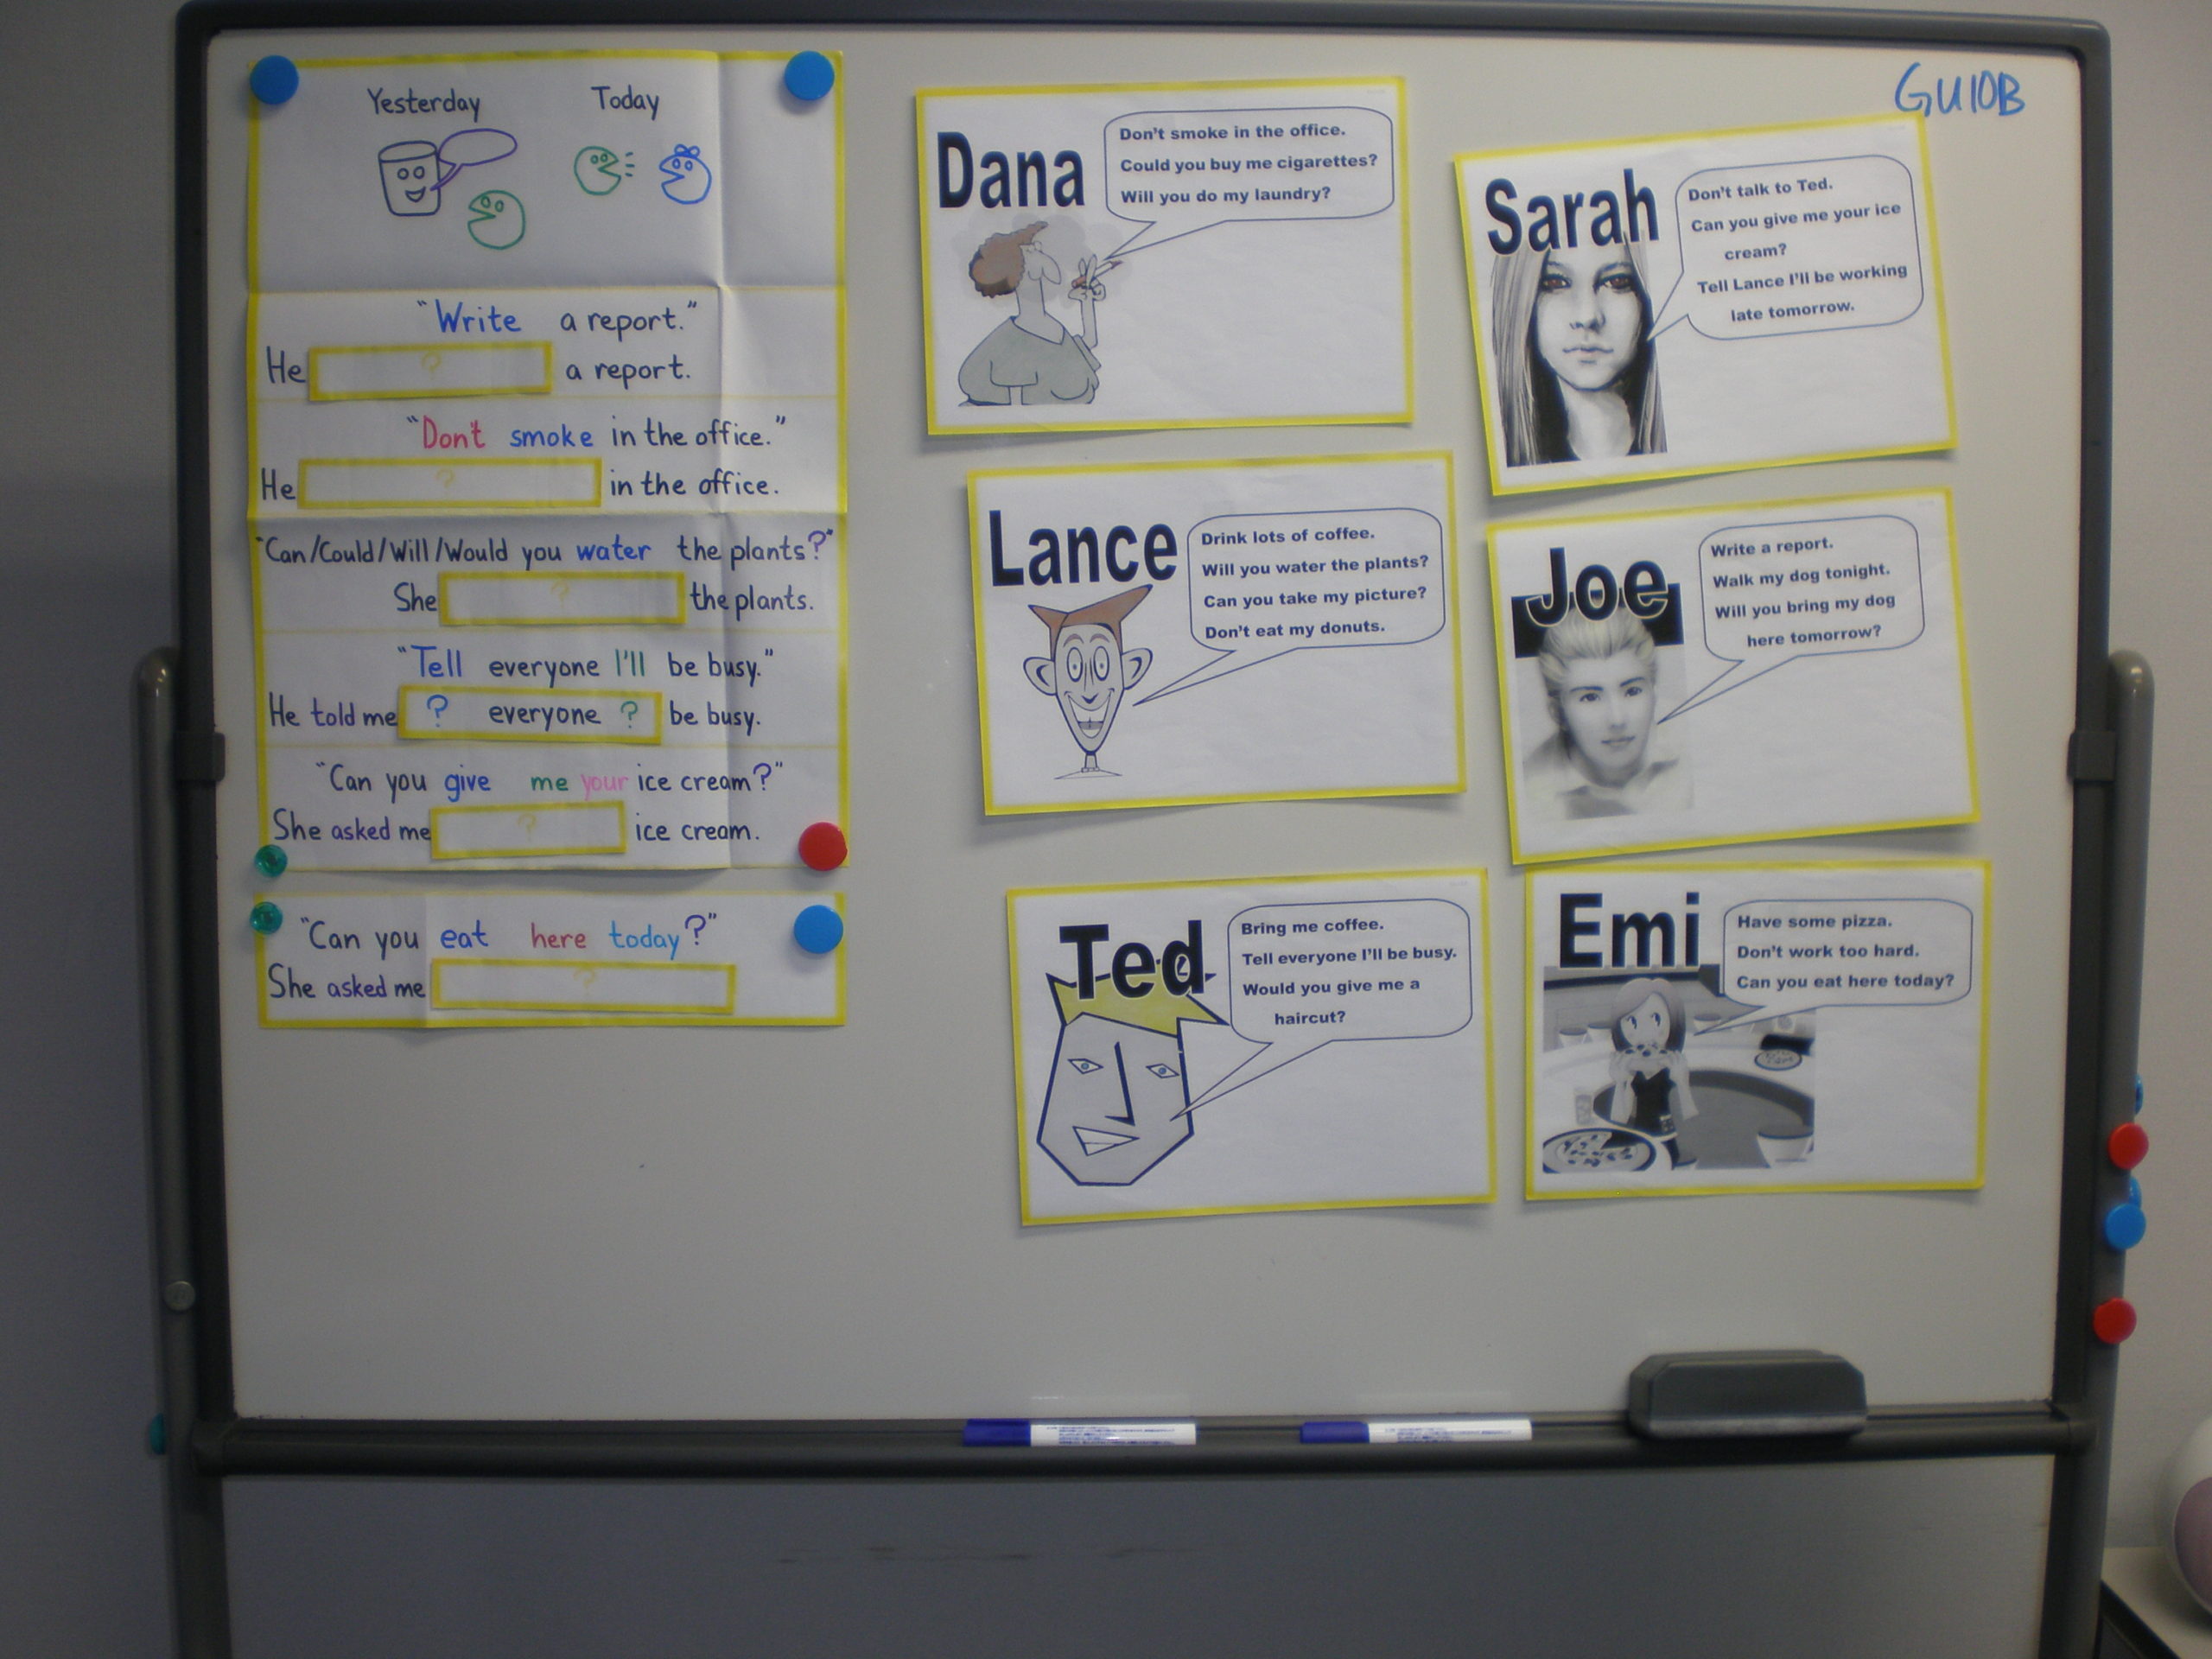 Yesterday Today
"Write a report."
He ? a report.
"Don't smoke in the office."
He ? in the office.
"Can/Could/Will/Would you water the plants?"
She ? the plants.
"Tell everyone I'll be busy."
He told me ? everyone ? be busy.
"Can you give me your ice cream?"
She asked me ? ice cream.
"Can you eat here today?"
She asked me ?
GU10B
Dana
Don't smoke in the office.
Could you buy me cigarettes?
Will you do my laundry?
Sarah
Don't talk to Ted.
Can you give me your ice
cream?
Tell Lance I'll be working
late tomorrow.
Lance
Drink lots of coffee.
Will you water the plants?
Can you take my picture?
Don't eat my donuts.
Joe
Write a report.
Walk my dog tonight.
Will you bring my dog
here tomorrow?
Ted
Bring me coffee.
Tell everyone I'll be busy.
Would you give me a
haircut?
Emi
Have some pizza.
Don't work too hard.
Can you eat here today?